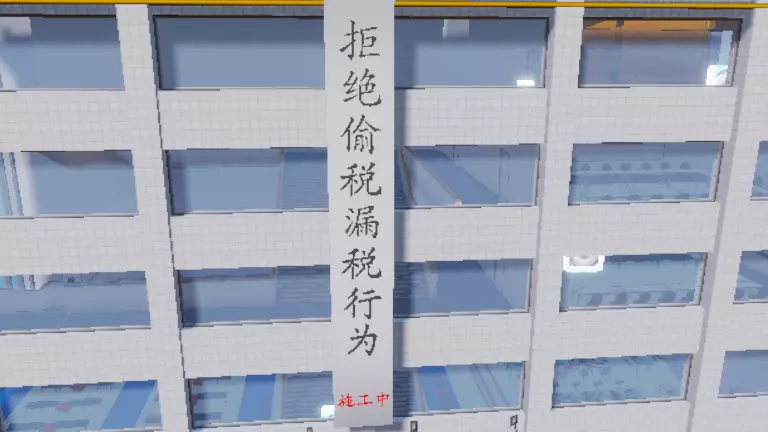 拒绝偷税漏税行为
施工中